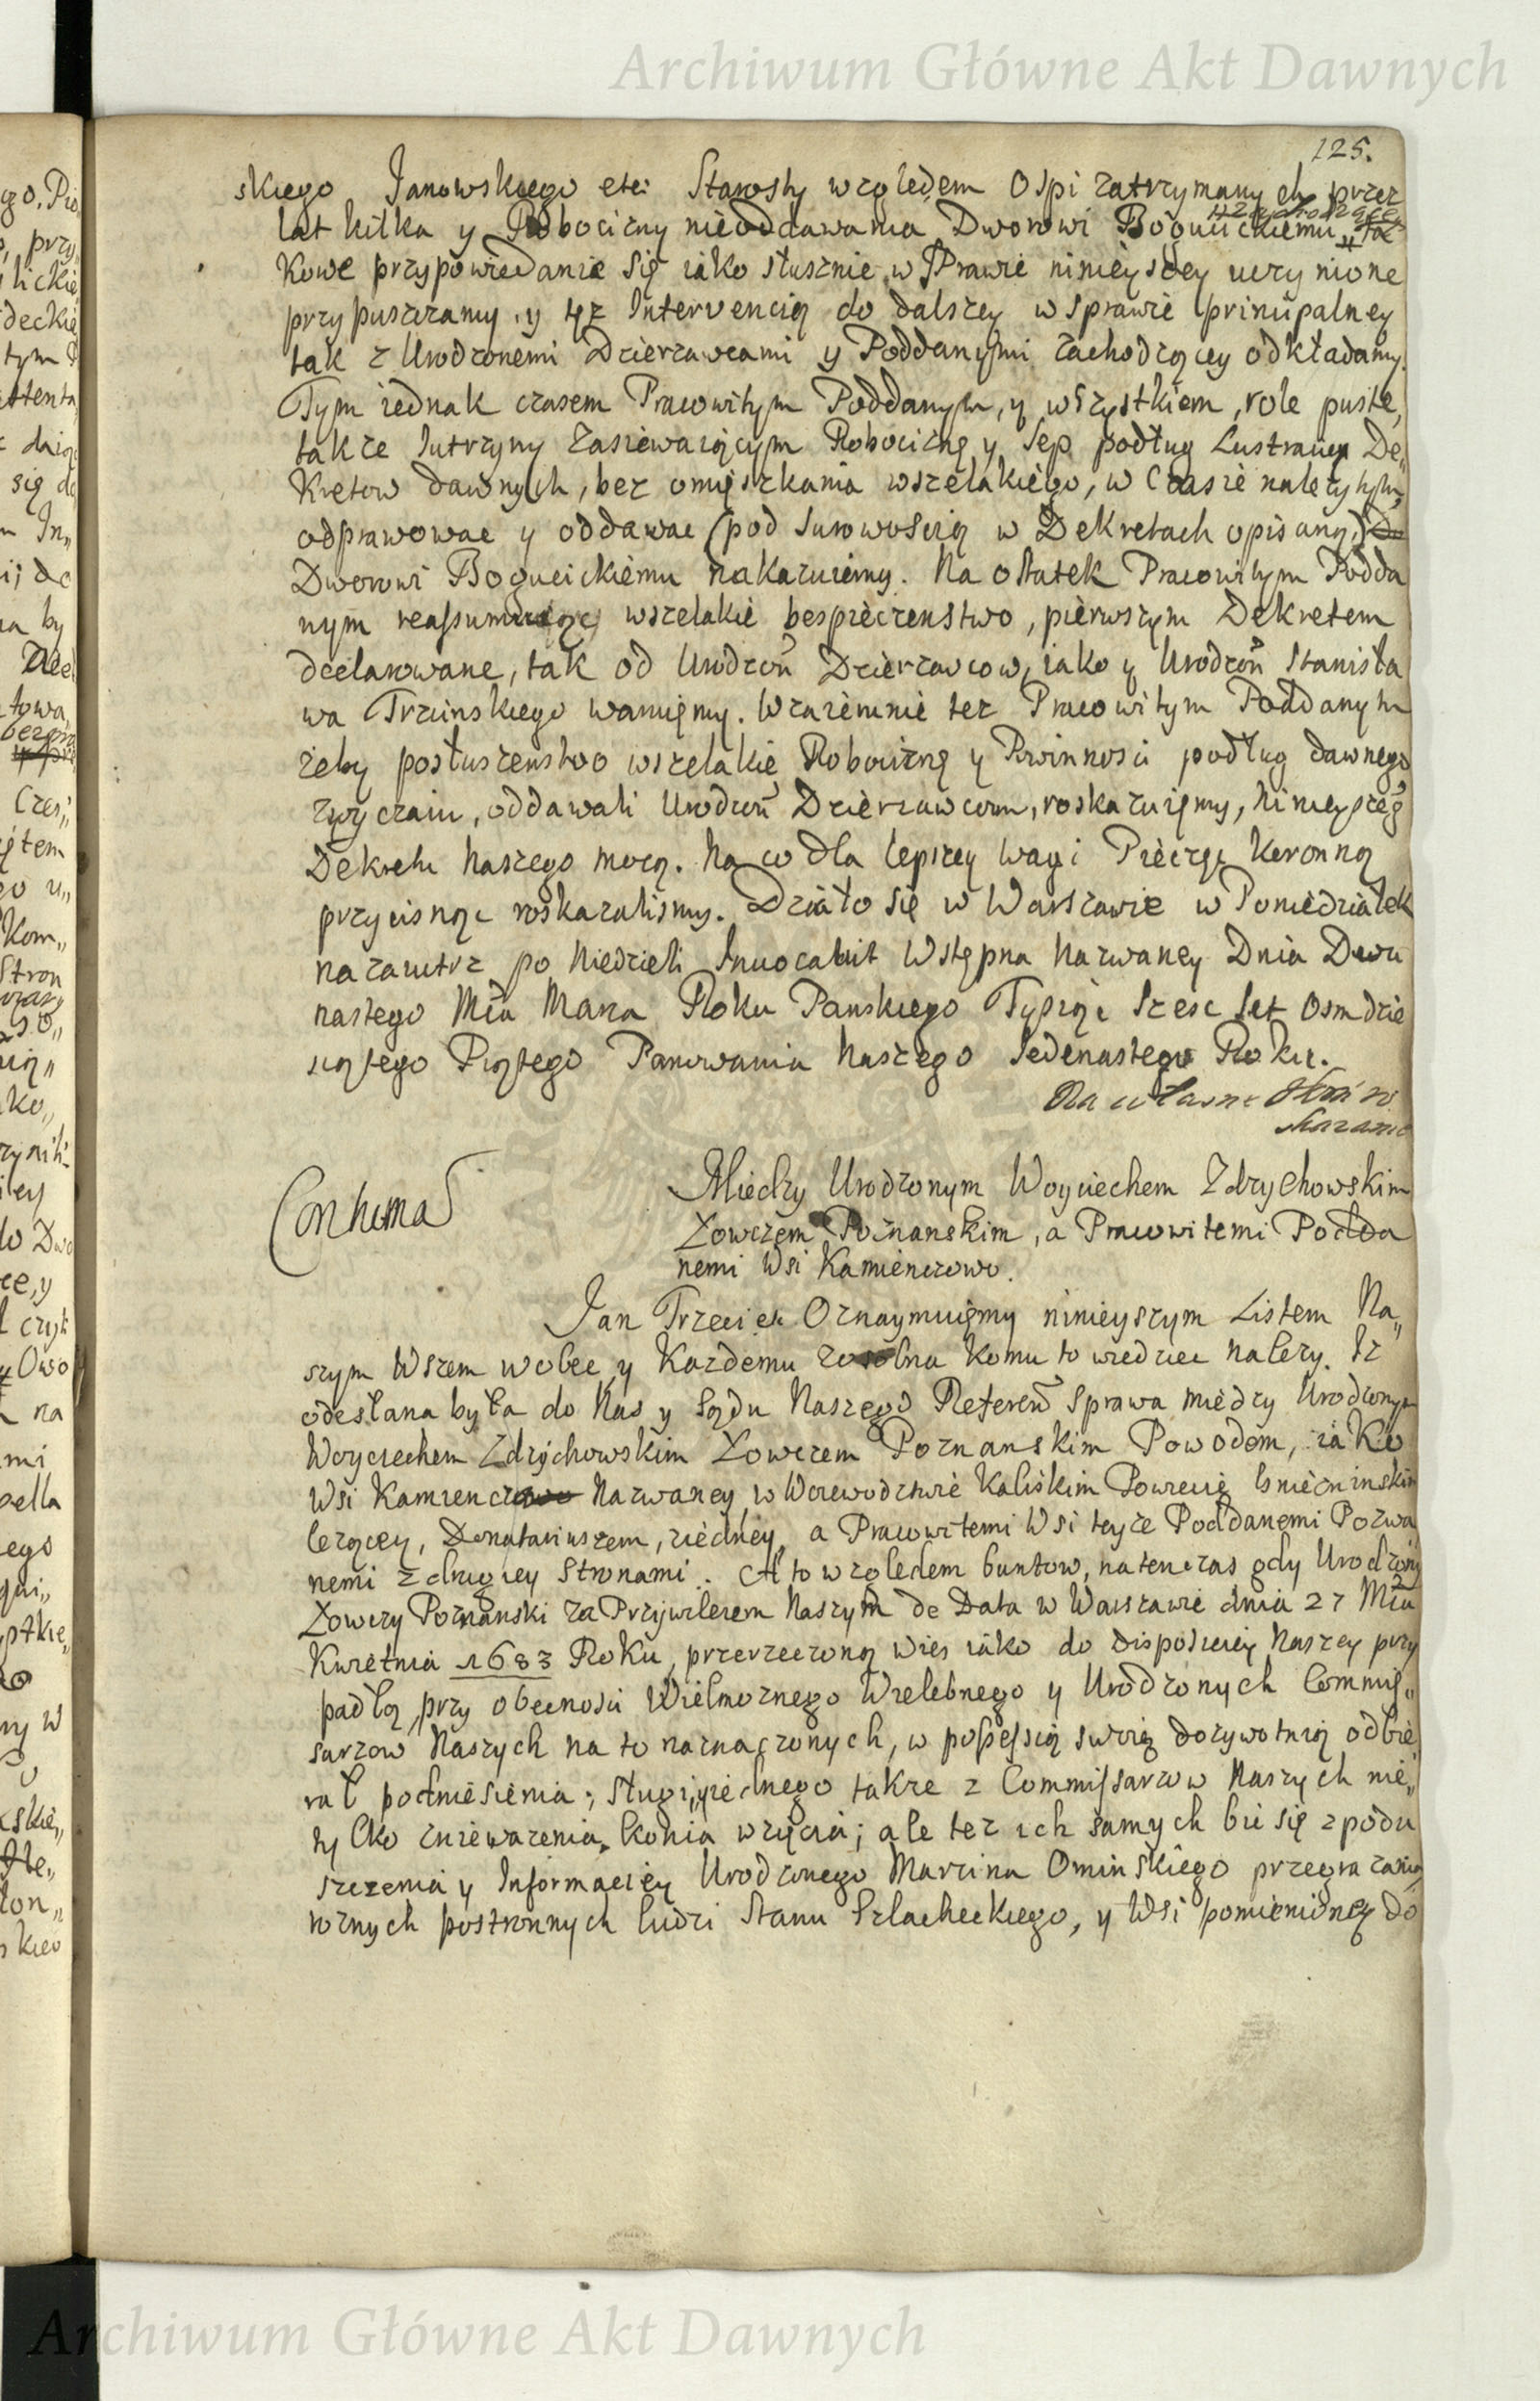 Archiwum Główne Akt Dawnych
125.
skiego Janowskiego etc: Starosty względem Ospi zatrzymanych przez
lat kilka y Robocizny nieoddawania Dworowi Bogucickiemu „ tac
kowe przypowiedanie się iako słusznie w Prawie ninieyszey uczynione
przypuszczamy, y tęż Interwencią do dalszey w sprawie principalney
tak z Urodzonemi Dzierzawcami y Poddanymi zachodzącey odkładamy.
Tym iednak czasem Pracowitym Poddanym, y wszystkiem, role puste,
takze Jutrzyny zasiewaiącym Robociznę y Sep podług Lustracyi De„
kretow dawnych, bez omięszkania wszelakiego, w Czasie nalezytym,
odprawowac y oddawac (pod surowoscią w Dekretach opisaną)
Dworowi Bogucickiemu nakazuiemy. Na ostatek Pracowitym Podda
nym reassumuiąc wszelakie bespieczenstwo, pierwszym Dekretem
declarowane, tak od Urodzoń Dzierzawcow, iako y Urodzoń Stanisła
wa Trzcinskiego waruięmy. Wzaiemnie tez Pracowitym Poddanym
zeby posłuszenstwo wszelakie Robociznę y Powinnosci podług dawnego
zwyczaiu, oddawali Urodzoń Dzierzawcom, roskazuięmy, ninieyszeg
Dekretu Naszego mocą. Na co dla lepszey wagi Pieczęc Koronną
przycisnąc roskazalismy. Działo się w Warszawie w Poniedziałek
nazaiutrz po Niedzieli Invocabit Wstępna nazwaney Dnia Dwu
nastego Mca Marca Roku Panskiego Tysiąc Szesc Set Osmdzie
siątego Piątego Panowania Naszego Jedenastego Roku.
Na własne
Między Urodzonym Woyciechem Zdzychowskim
Łowczem Poznanskim, a Pracowitemi Podda
nemi Wsi Kamienczowo.
Jan Trzeci etc Oznaymuięmy ninieyszym Listem Na„
szym Wszem wobec y Kazdemu zosobna komu to wiedziec nalezy. Iz
odesłana była do Nas y Sądu Naszego Refereń Sprawa między Urodzonym
Woyciechem Zdzychowskim Łowczem Poznanskim Powodem, iako
Wsi Kamienczowo Nazwaney w Woiewodztwie Kaliskim Powiecię Gniezninskim
lezącey, Donatariuszem, ziedney, a Pracowitemi Wsi teyze Poddanemi Pozwa
nemi zdrugiey Stronami. A to względem buntow, natenczas gdy Urodzony
Łowczy Poznanski za Przywileiem Naszym de Data w Warszawie dnia 27 Mca
Kwietnia 1683 Roku, przerzeczoną wies iako do dispoziciey Naszey przy
padłą, przy obecnosci Wielmoznego Wielebnego y Urodzonych Commis„
sarzow Naszych na to naznaczonych, w possessią swoię dozywotnią odbie
rał podniesienia; sługi, iednego takze z Commissarzow Naszych nie„
tylko zniewazenia, konia wzięcia; ale tez ich samych bic się z podu
szczenia y Informaciey Urodzonego Marcina Ominskiego przegrazania
roznych postronnych ludzi Stanu Szlacheckiego, y Wsi pomienioney do
Archiwum Główne Akt Dawnych